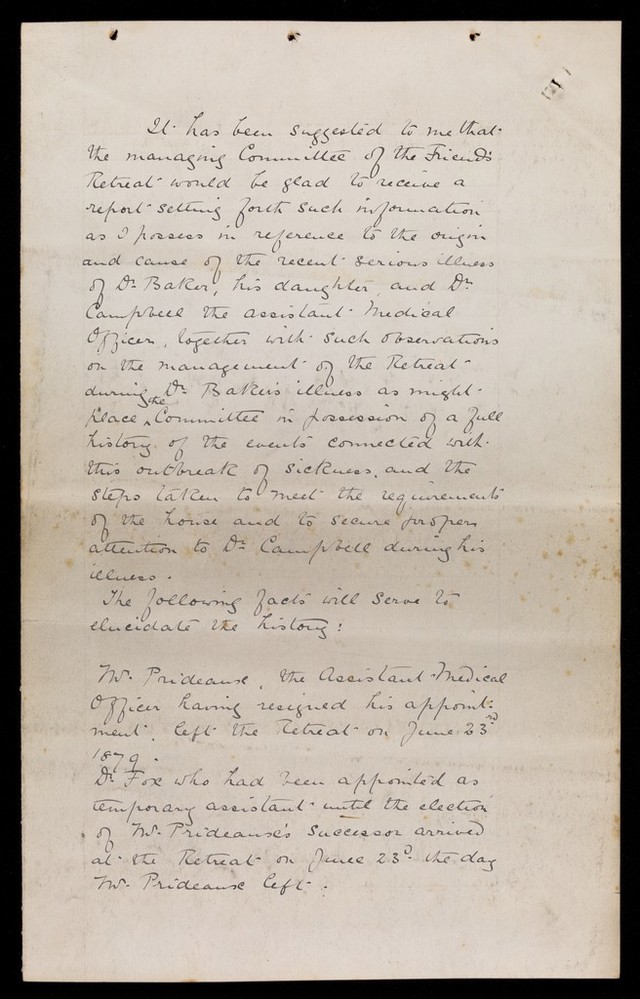 It has been suggested to me that
the managing Committee of the Friends
Retreat would be glad to receive a
report setting forth such information
as I possess in reference to the origin
and cause of the recent serious illness
of Dr. Baker, his daughter, and Dr.
Campbell the assistant Medical
Officer, together with such observations
on the management of the Retreat
during Dr. Baker's illness as might
place the Committee in possession of a full
history of the events connected with
this outbreak of sickness, and the
steps taken to meet the requirements
of the house and to secure proper
attention to Dr. Campbell during his
illness.
The following facts will serve to
elucidate the history:
Mr. Prideaux, the Assistant Medical
Officer having resigned his appoint-
ment, left the Retreat on June 23rd
1879.
Dr. Fox who had been appointed as
temporary assistant until the election
of Mr. Prideaux's successor arrived
at the Retreat on June 23d. the day
Mr. Prideaux left.